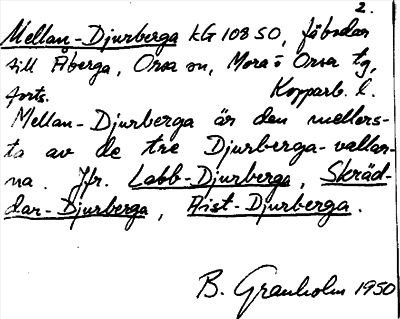 2.
Mellan-Djurberga KG 108 SO, fäbodar
till Åberga, Orsa sn, Mora o Orsa tg,
forts. Kopparb. l.
Mellan-Djurberga är den mellers-
ta av de tre Djurberga-vallar-
na. Jfr. Labb-Djurberga, Skräd-
dar-Djurberga, Aist-Djurberga.
B. Granholm 1950